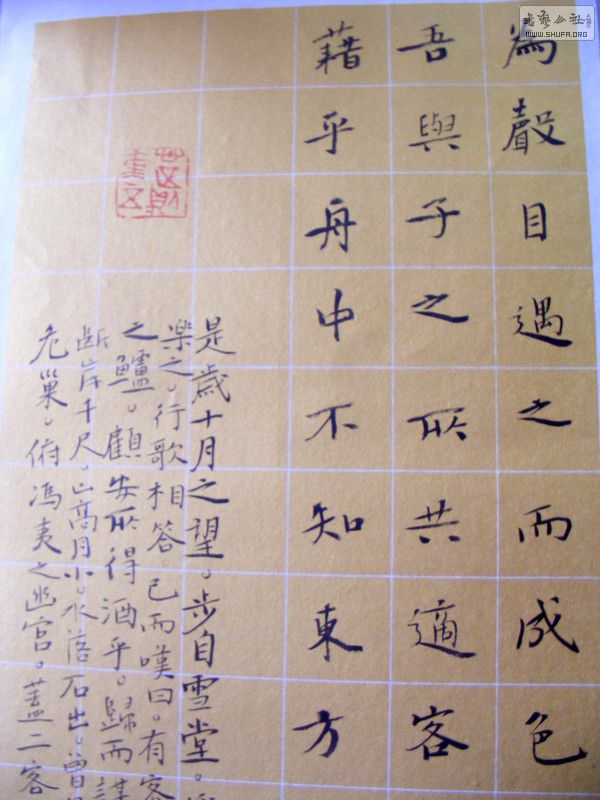 為聲目遇之而成色
吾與子之所共適客
藉乎舟中不知東方
是歲十月之望。步自雪堂。
樂之。行歌相答。已而嘆曰。有客
之鱸。顧安所得酒乎。歸而
断岸千尺。山高月小。水落石出。曾
危巢。俯馮夷之幽宮。蓋二客
书艺公社
WWW.SHUFA.ORG